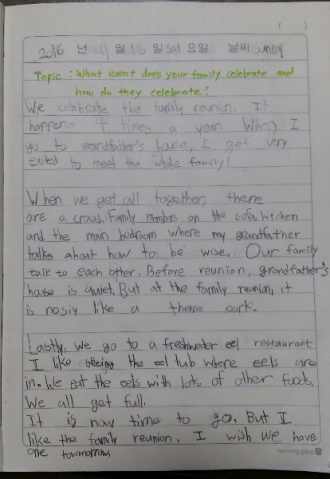 2016 년 4 월 16 일 sat 요일 날씨 sunny
Topic : What event does your family celebrate and
how do they celebrate?
We celebrate the family reunion. It
happens 4 times a year. When I
go to grandfather's house, I get very
exited to meet the whole family!
When we get all together, there
are a crowd. Family members on the sofa, kitchen
and the main bedroom where my grandfather
talks about how to be wise. Our family
talk to each other. Before reunion, grandfather's
house is quiet. But at the family reunion, it
is nosiy like a theme park.
Lastly, we go to a freshwater eel restaurant
I like seeing the eel tub where eels are
in. We eat the eels with lots of other foods.
We all get full.
It is now time to go. But I
like the family reunion. I wish we have
one towmorrow